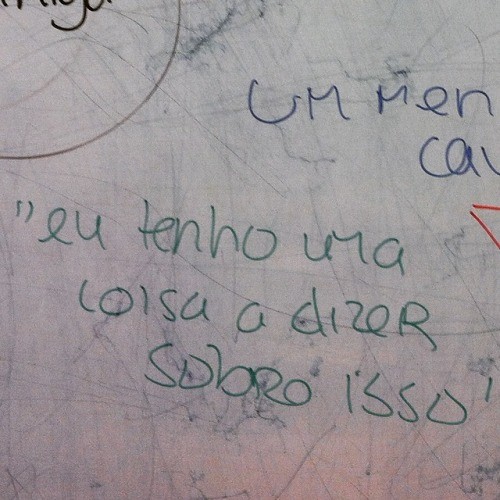 um men
cav
"eu tenho uma
coisa a dizer
sobro isso"